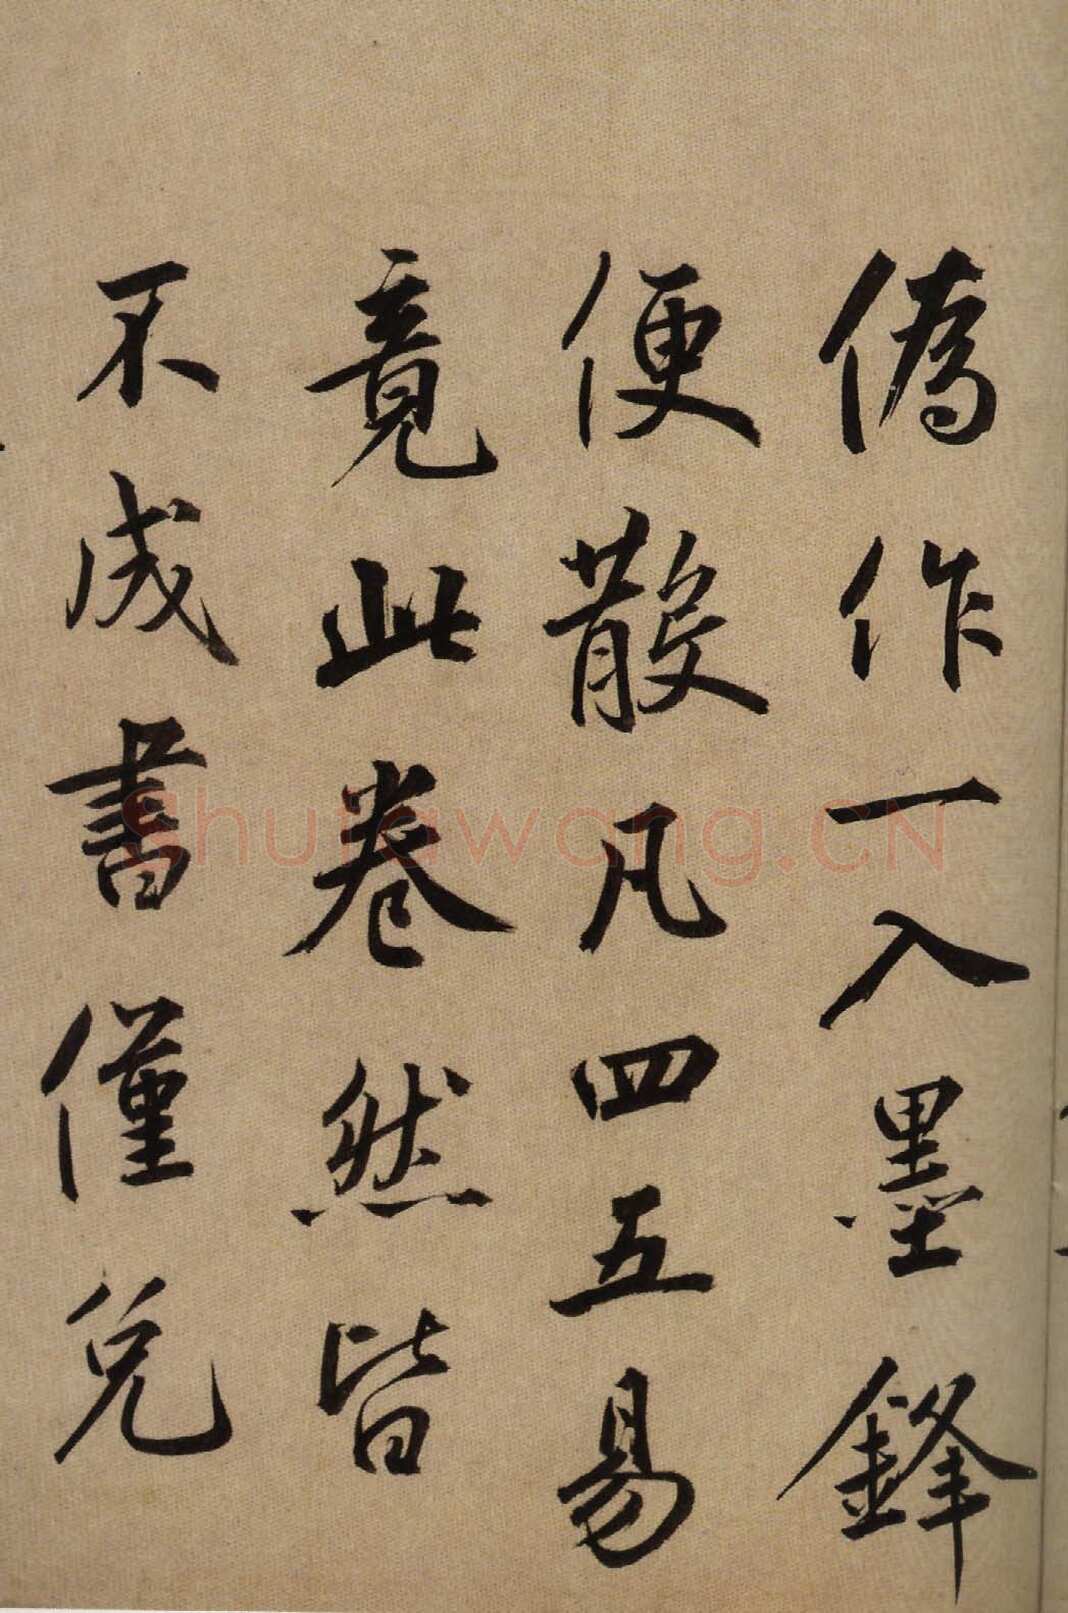 偽作一入墨鋒
便散凡四五易
竟此卷然皆
不成書僅免
shufawang.CN